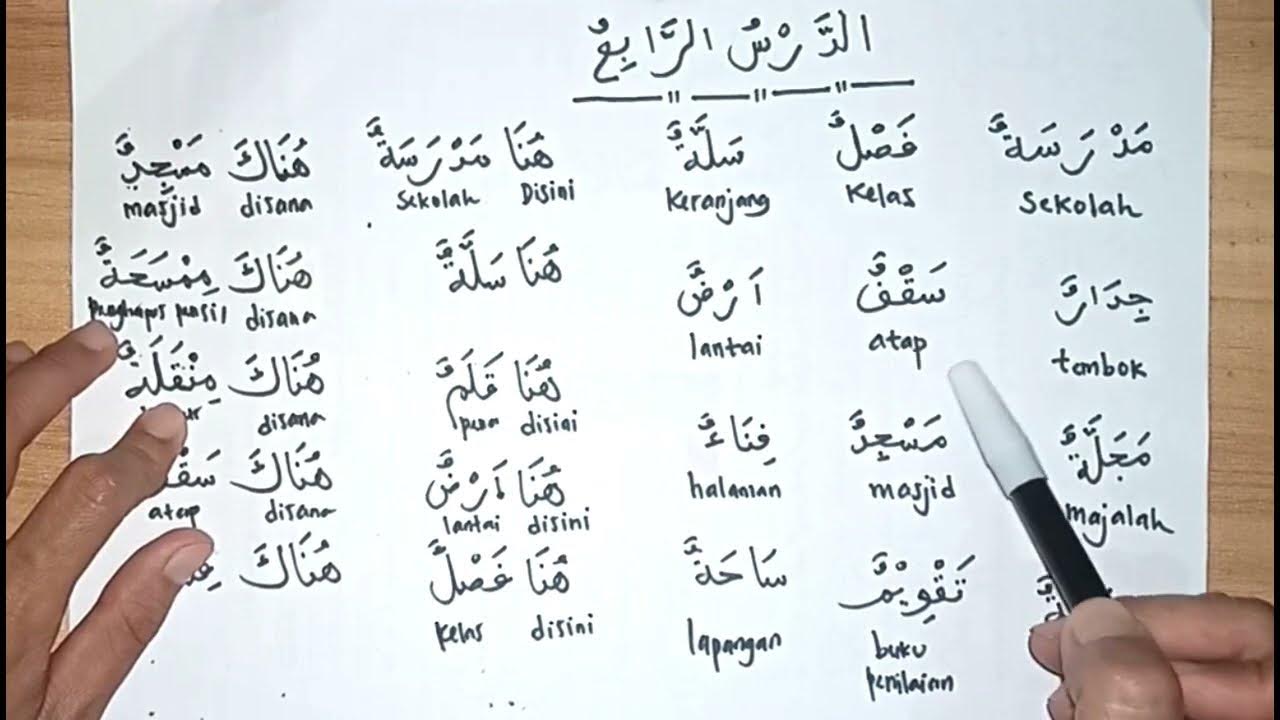 الدَّرْسُ الرَّابِعُ
مَدْرَسَةٌ
Sekolah
جِدَارٌ
tembok
مَجَلَّةٌ
majalah
فَصْلٌ
Kelas
سَقْفٌ
atap
مَسْجِدٌ
masjid
تَقْوِيْمٌ
buku
penilaian
سَلَّةٌ
Keranjang
اَرْضٌ
lantai
فِنَاءٌ
halaman
سَاحَةٌ
lapangan
هُنَا مَدْرَسَةٌ
Sekolah Disini
هُنَا سَلَّةٌ
هُنَا قَلَمٌ
pena disini
هُنَا اَرْضٌ
lantai disini
هُنَا فَصْلٌ
kelas disini
هُنَاكَ مَسْجِدٌ
masjid disana
هُنَاكَ مِمْسَحَةٌ
penghapus pensil disana
هُنَاكَ مِنْقَلَةٌ
disana
هُنَاكَ
atap disana
هُنَاكَ